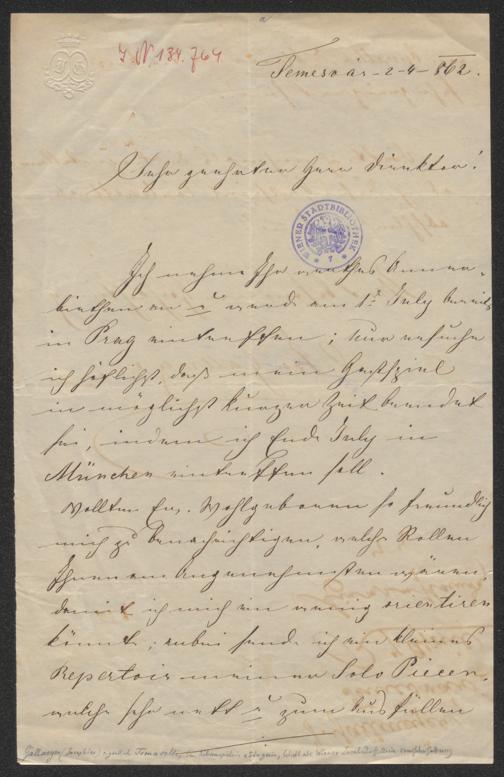 I N 134.764
Temesvár - 2 - 4 - 862.
Sehr geehrter Herr Direktor!
WIENER STADTBIBLIOTHEK
Ich nehme Ihr werthes Aner-
biethen an u werde am 1t July bereits
in Prag eintreffen; nur ersuche
ich höflichst, daß mein Gastspiel
in möglichst kurzer Zeit beendet
sei, indem ich Ende July in
München eintreffen soll.
Wollten Eu. Wohlgeboren so freundlich
mich zu benachrichtigen, welche Rollen
Ihnen am Angenehmsten wären
damit ich mich ein wenig orientiren
könnte; anbei sende ich ein kleines
Repertoir meiner Solo Piecen,
welche sehr nett u zum Ausfüllen
Gallmeyer, Josephine, eigentlich Tomaselli,